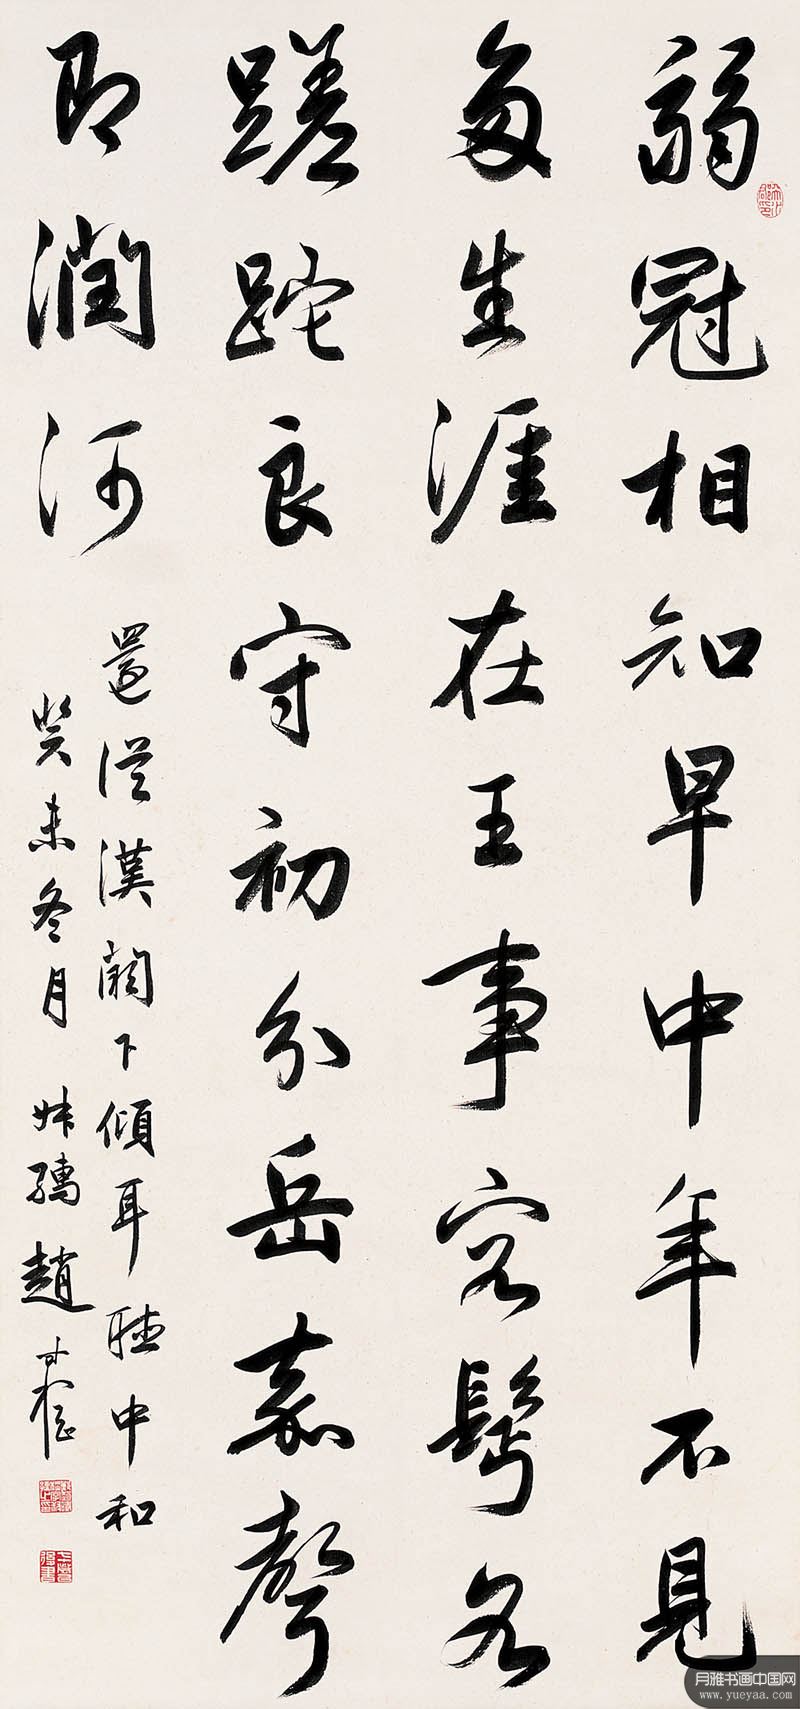 弱冠相知早中年不見
多生涯在王事客鬢各
蹉跎良守初分岳嘉聲
即潤河
還從漢闕下傾耳聽中和
癸未冬月 趙
月雅书画中国网
www.yueyaa.com